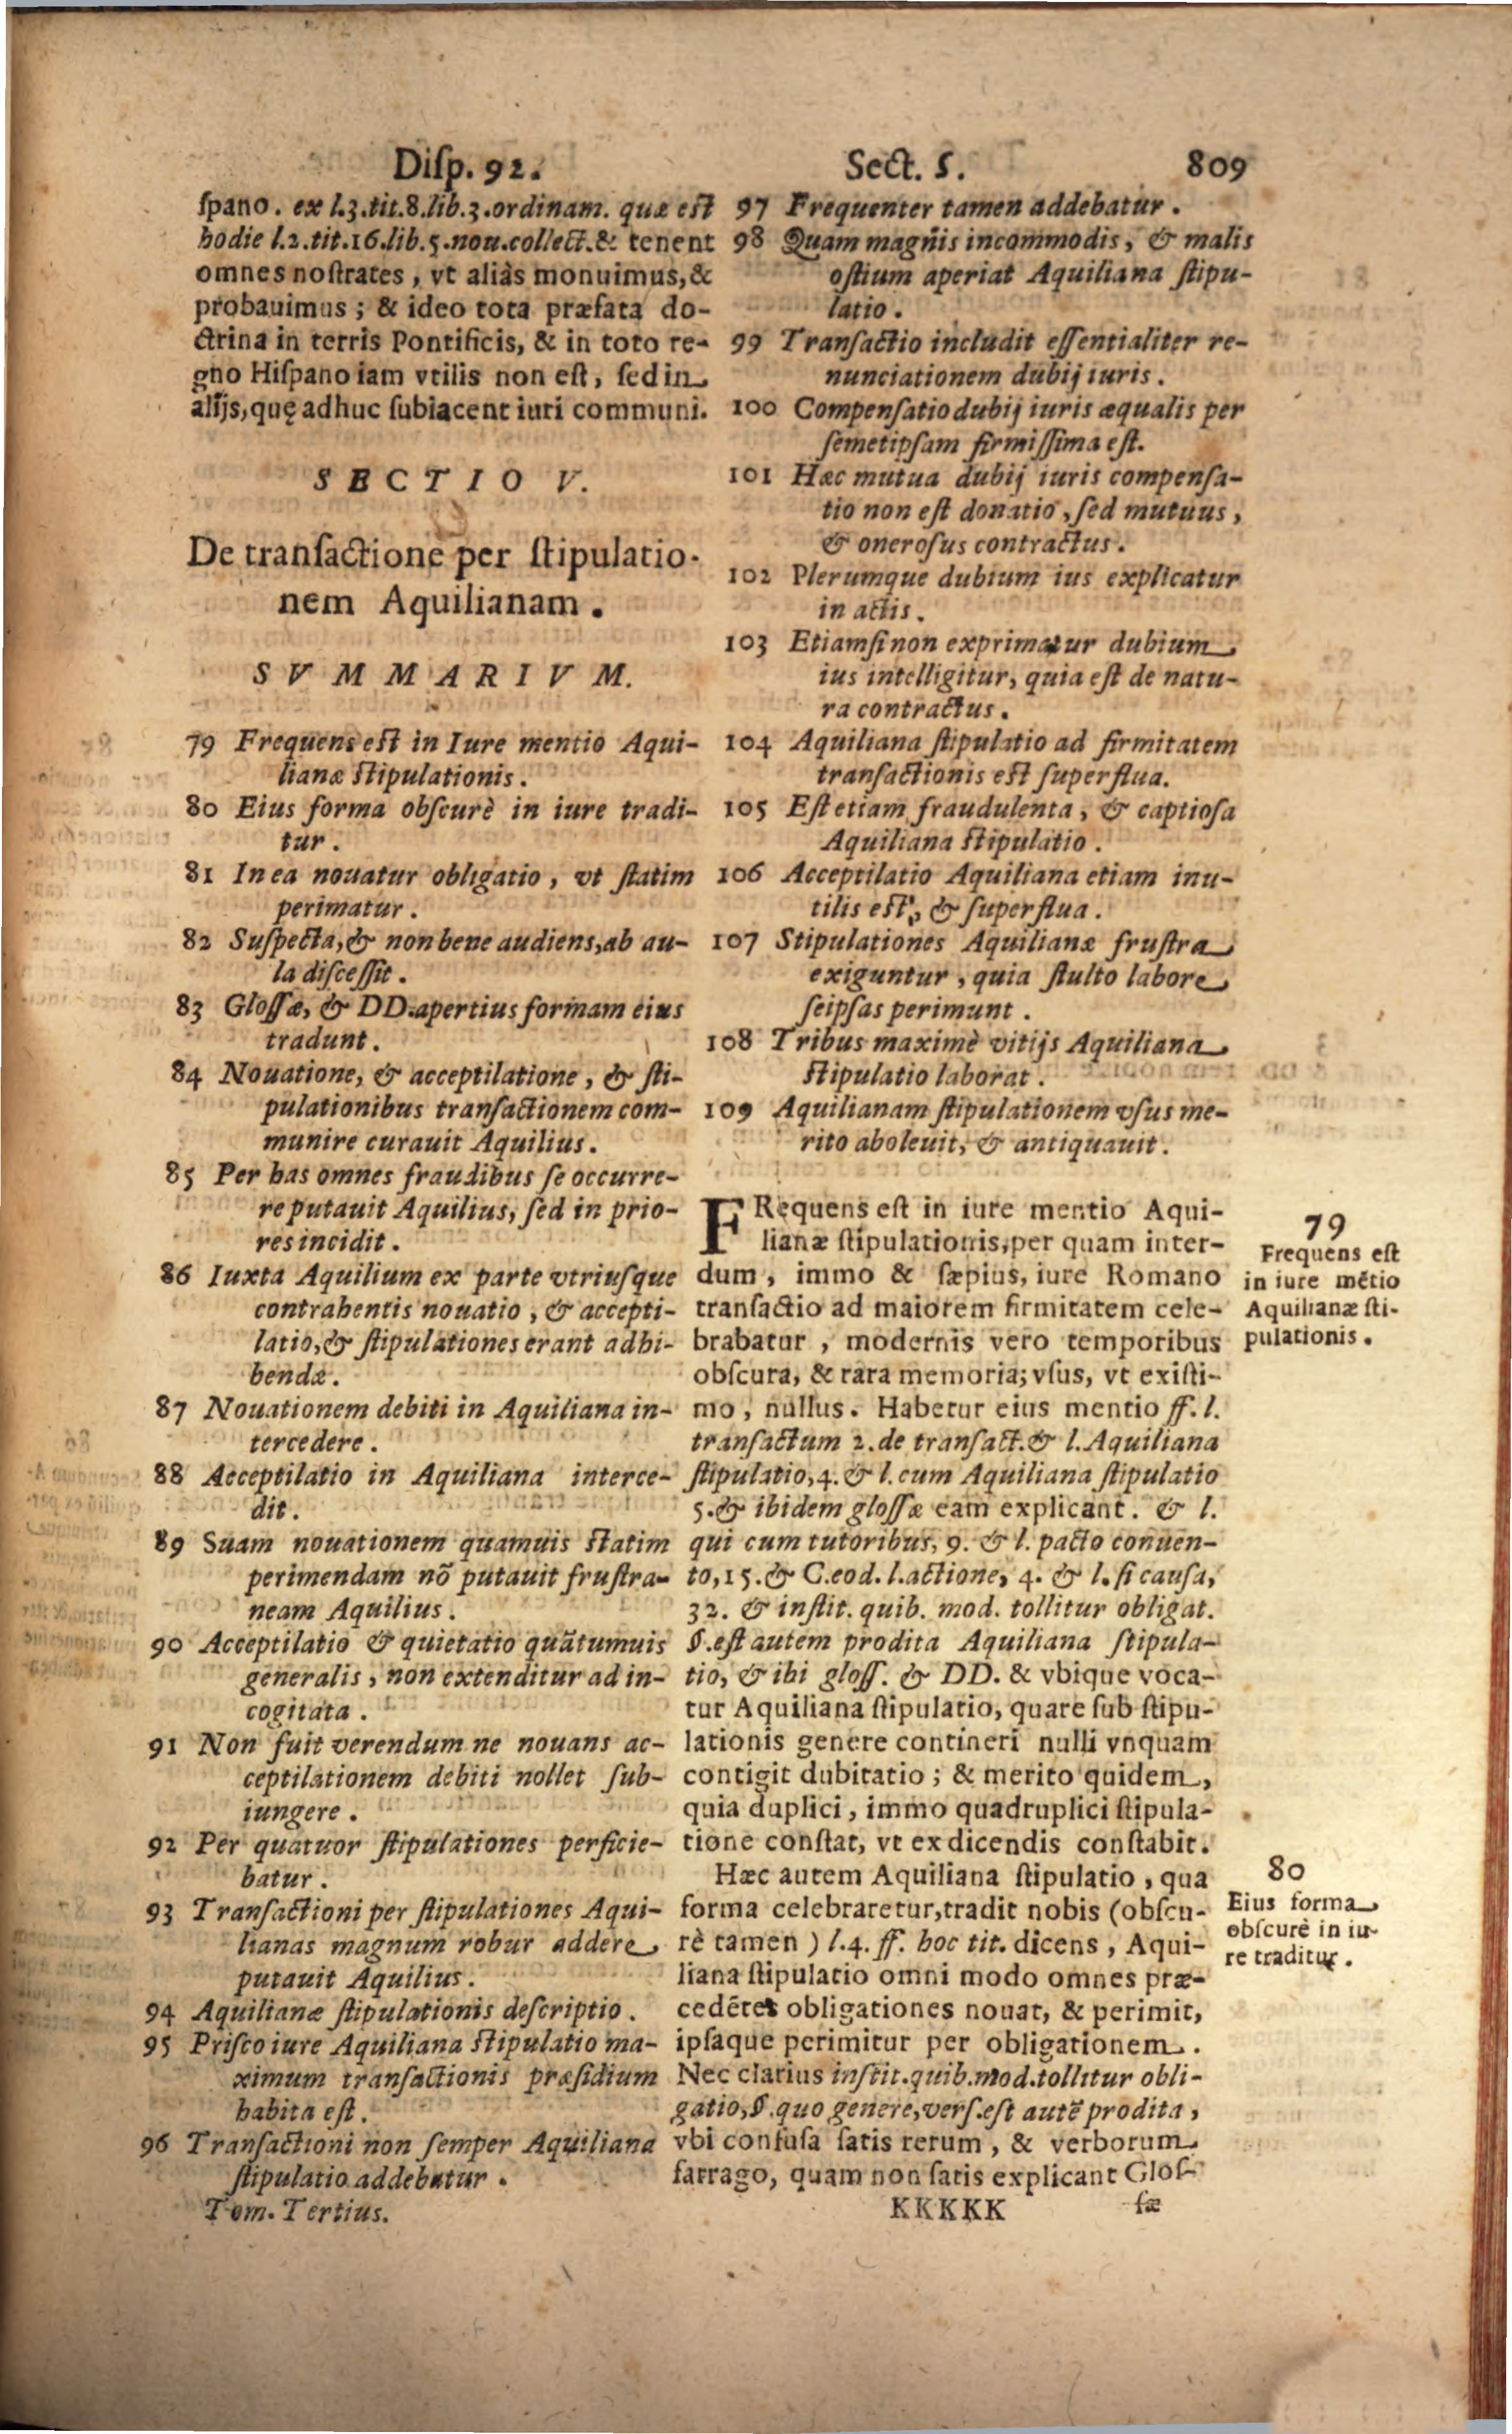 Disp. 92. Sect. 5. 809
spano. ex l.3.tit.8.lib.3.ordinam. quæ est
hodie l.2.tit.16.lib.5.nou.collect.& tenent
omnes nostrates, vt aliàs monuimus,&
probauimus; & ideo tota præfata do-
ctrina in terris Pontificis, & in toto re-
gno Hispano iam vtilis non est, sed in
alijs, quę adhuc subiacent iuri communi.
SECTIO V.
De transactione per stipulatio-
nem Aquilianam.
SVMMARIVM.
79 Frequens est in Iure mentio Aqui-
lianæ stipulationis.
80 Eius forma obscurè in iure tradi-
tur.
81 In ea nouatur obligatio, vt statim
perimatur.
82 Suspecta,& non bene audiens,ab au-
la discessit.
83 Glossæ, & DD.apertius formam eius
tradunt.
84 Nouatione, & acceptilatione, & sti-
pulationibus transactionem com-
munire curauit Aquilius.
85 Per has omnes fraudibus se occurre-
re putauit Aquilius, sed in prio-
res incidit.
86 Iuxta Aquilium ex parte vtriusque
contrahentis nouatio, & accepti-
latio,& stipulationes erant adhi-
bendæ.
87 Nouationem debiti in Aquiliana in-
tercedere.
88 Acceptilatio in Aquiliana interce-
dit.
89 Suam nouationem quamuis statim
perimendam nõ putauit frustra-
neam Aquilius.
90 Acceptilatio & quietatio quãtumuis
generalis, non extenditur ad in-
cogitata.
91 Non fuit verendum ne nouans ac-
ceptilationem debiti nollet sub-
iungere.
92 Per quatuor stipulationes perficie-
batur.
93 Transactioni per stipulationes Aqui-
lianas magnum robur addere
putauit Aquilius.
94 Aquilianæ stipulationis descriptio.
95 Prisco iure Aquiliana stipulatio ma-
ximum transactionis præsidium
habita est.
96 Transactioni non semper Aquiliana
stipulatio addebatur.
Tom. Tertius.
97 Frequenter tamen addebatur.
98 Quam magnis incommodis, & malis
ostium aperiat Aquiliana stipu-
latio.
99 Transactio includit essentialiter re-
nunciationem dubij iuris.
100 Compensatio dubij iuris æqualis per
semetipsam firmissima est.
101 Hæc mutua dubij iuris compensa-
tio non est donatio, sed mutuus,
& onerosus contractus.
102 Plerumque dubium ius explicatur
in actis.
103 Etiamsi non exprimatur dubium
ius intelligitur, quia est de natu-
ra contractus.
104 Aquiliana stipulatio ad firmitatem
transactionis est superflua.
105 Est etiam fraudulenta, & captiosa
Aquiliana stipulatio.
106 Acceptilatio Aquiliana etiam inu-
tilis est, & superflua.
107 Stipulationes Aquilianæ frustra
exiguntur, quia stulto labore
seipsas perimunt.
108 Tribus maximè vitijs Aquiliana
stipulatio laborat.
109 Aquilianam stipulationem vsus me-
rito aboleuit, & antiquauit.
FRequens est in iure mentio Aqui-
lianæ stipulationis,per quam inter-
dum, immo & sæpius, iure Romano
transactio ad maiorem firmitatem cele-
brabatur, modernis vero temporibus
obscura, & rara memoria; vsus, vt existi-
mo, nullus. Habetur eius mentio ff. l.
transactum 2.de transact.& l.Aquiliana
stipulatio,4. & l.cum Aquiliana stipulatio
5.& ibidem glossæ eam explicant. & l.
qui cum tutoribus, 9. & l. pacto conuen-
to,15.& C.eod. l.actione, 4. & l. si causa,
32. & instit. quib. mod. tollitur obligat.
§.est autem prodita Aquiliana stipula-
tio, & ibi gloss. & DD. & vbique voca-
tur Aquiliana stipulatio, quare sub stipu-
lationis genere contineri nulli vnquam
contigit dubitatio; & merito quidem,
quia duplici, immo quadruplici stipula-
tione constat, vt ex dicendis constabit.
Hæc autem Aquiliana stipulatio, qua
forma celebraretur,tradit nobis (obscu-
rè tamen) l.4. ff. hoc tit. dicens, Aqui-
liana stipulatio omni modo omnes præ-
cedẽtes obligationes nouat, & perimit,
ipsaque perimitur per obligationem.
Nec clarius instit.quib.mod.tollitur obli-
gatio,§.quo genere,vers.est autẽ prodita,
vbi confusa satis rerum, & verborum
farrago, quam non satis explicant Glos-
KKKKK sæ
79
Frequens est
in iure mẽtio
Aquilianæ sti-
pulationis.
80
Eius forma
obscurè in iu-
re traditur.